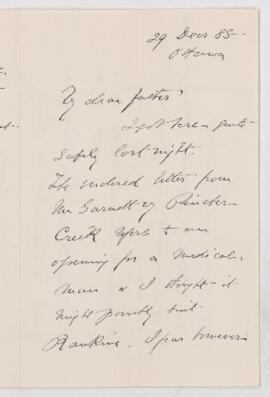 29 Decr 85
Ottawa
My dear foster
I got here quite
safely last night.
The enclosed letter from
Mr Garnett of Pincher
Creek refers to an
opening for a medical
man & I thought it
might possibly suit
Rankine. I fear however